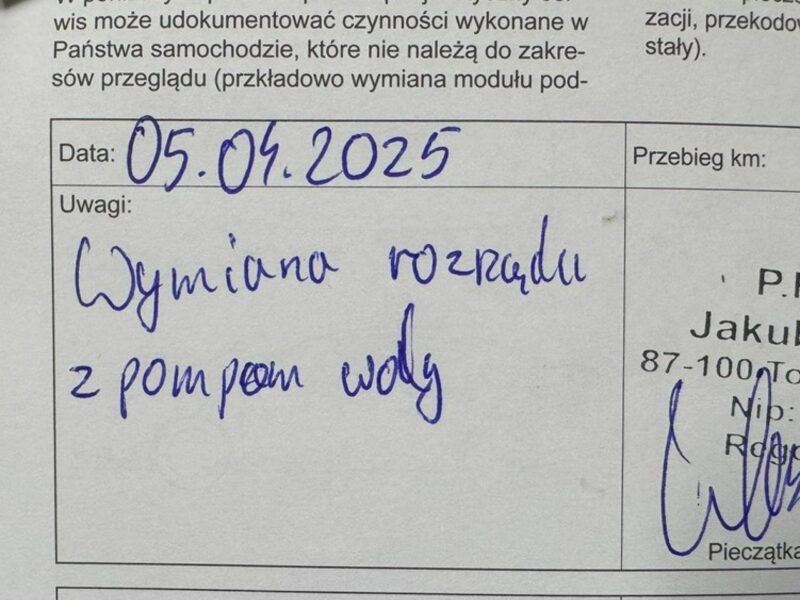 wis może udokumentować czynności wykonane w
Państwa samochodzie, które nie należą do zakre-
sów przeglądu (przkładowo wymiana modułu pod-
zacji, przekodow
stały).
Data: 05.04.2025
Przebieg km:
Uwagi:
Wymiana rozrządu
z pompom wody
P.
Jakub
87-100 To
Nip:
Reg
Pieczątka